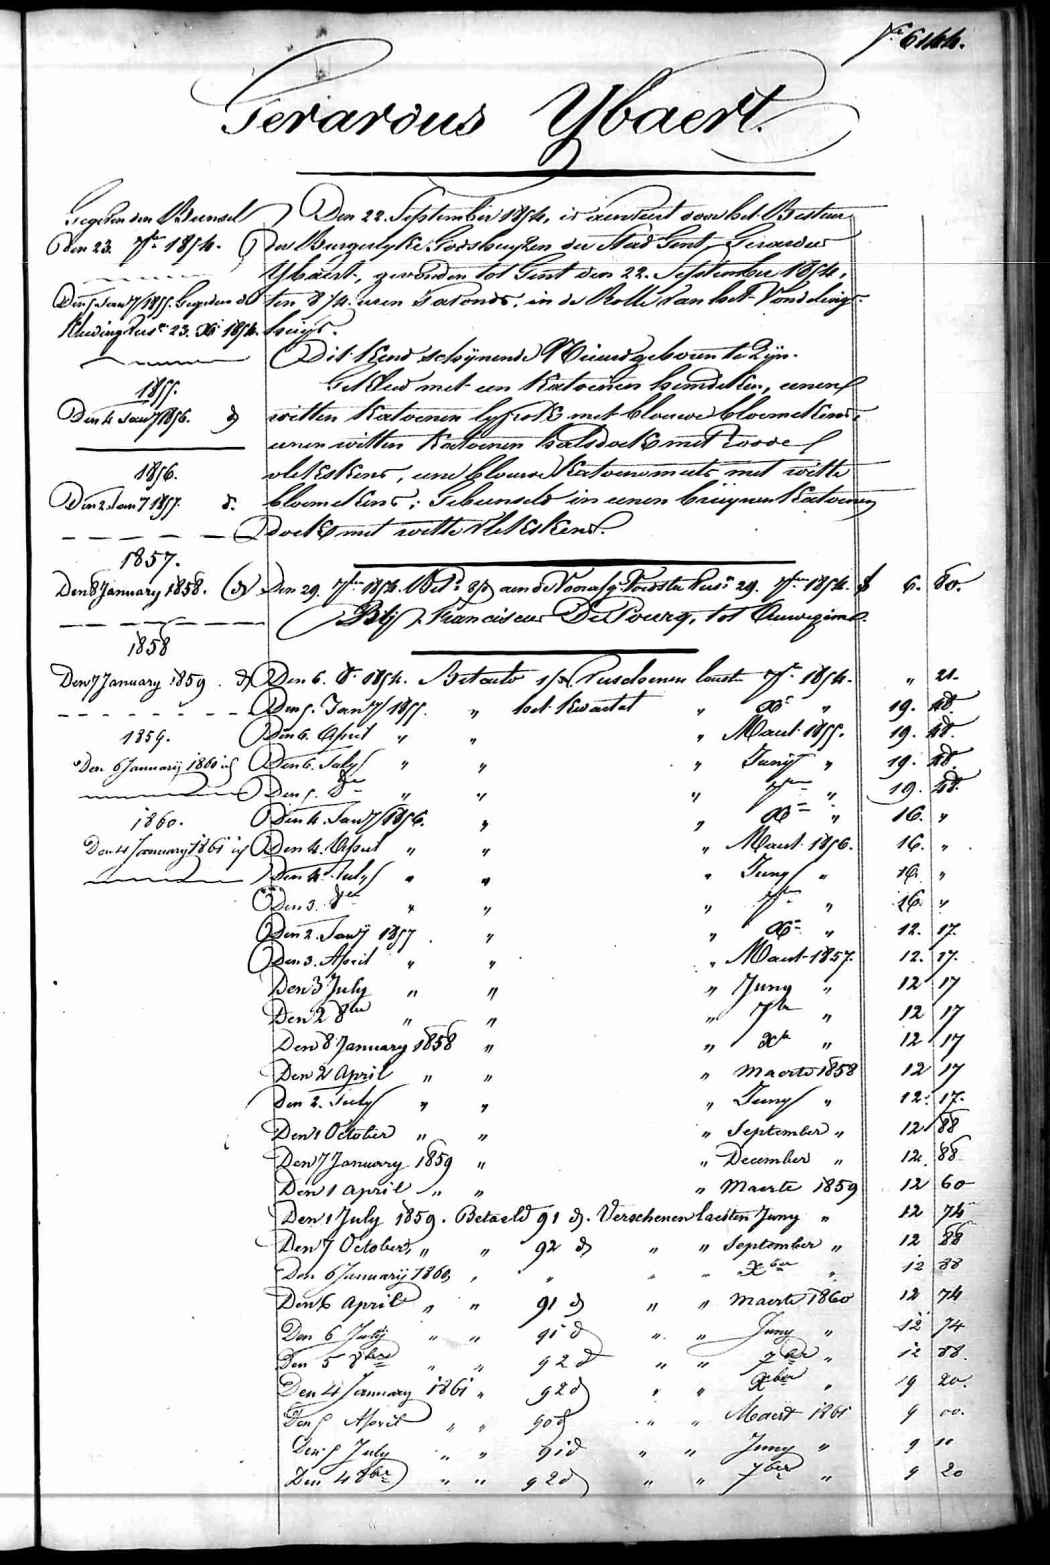 N.º 6144.
Gerardus Ybaert.
Gegeven den Bunsel
den 23. 7bre 1854.
Den 5 Jany 1855. Gegeven de
Kleeding Verst. 23. Xbr 1854.
1855.
Den 4 Jany 1856. d
1856.
Den 2 Jany 1857. d.
1857.
Den 8 January 1858. d
1858
Den 7 January 1859. d
1859.
Den 6 Januarij 1860 id
1860.
Den 4 January 1861 id
Den 22. September 1854, is door het Bestuer
der Burgerlyke Godshuyzen der Stad Gent, Gerardus
Ybaert, gevonden tot Gent den 22. September 1854,
ten 8 1/4 uren s'avonds, in de Rolle van het Vondelings-
huys.
Dit Kind schynende Nieuwgeboren te Zyn.
Gekleed met een Katoenen hemdeken, eenen
witten Katoenen lyfrok met blauwe bloemekens,
eenen witten Katoenen halsdoek met roode
vlekskens, eene blauwe Katoene muts met witte
bloemekens; Gebunseld in eenen bruynen Katoenen
doek met witte vlekskens.
Den 29. 7bre 1854. aen de Voorzg. Voedster 29. 7bre 1854. f 6. 80.
By Franciscus De Pourcq, tot Auweghem.
Den 6. 8br 1854. Betaeld Verschenen laeste 7br 1854. " 21.
Den 5. Jany 1855. " het Kwartael " Xbr " 19. 48.
Den 6. April " " " Maert 1855. 19. 48.
Den 6. July " " " Juny " 19. 48.
Den 5. 8bre " " " 7bre " 19. 48.
Den 4. Jany 1856. " " Xbre " 16. "
Den 4. April " " " Maert 1856. 16. "
Den 4. July " " " Juny " 16. "
Den 3. 8bre " " " 7bre " 16. "
Den 2. Jany 1857 " " Xbre " 12. 17.
Den 3. April " " " Maert 1857. 12. 17.
Den 3 July " " " Juny " 12 17
Den 2 8bre " " " 7bre " 12 17
Den 8 January 1858 " " Xbr " 12 17
Den 2 April " " " Maerte 1858 12 17
Den 2. July " " " Juny " 12. 17.
Den 1 October " " " September " 12 88
Den 7 January 1859 " " December " 12. 88
Den 1 April " " " Maerte 1859 12 60
Den 1 July 1859. Betaeld 91 d. Verschenen laesten Juny " 12 74
Den 7 October, " " 92 d " " September " 12 88
Den 6 Januarij 1860, " " " " Xber " 12 88
Den 6 April " " 91 d " " Maerte 1860 12 74
Den 6 July " " 91 d " " Juny " 12 74
Den 5 8bre " " 92 d " " 7bre " 12 88.
Den 4 January 1861 " 92 d " " Xber " 19 20.
Den 5 April " " 90 d " " Maert 1861 9 00.
Den 5 July " " 91 d " " Juny " 9 10
Den 4 8bre " " 92 d " " 7ber " 9 20